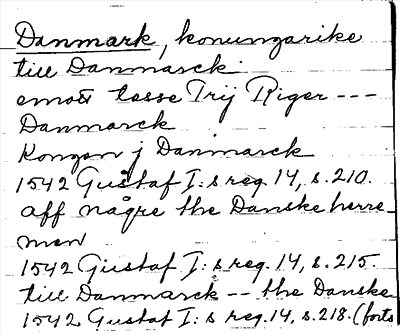 Danmark, konungarike
till Danmarck
emott tesse Trij Riger ---
Danmarck
Kongen j Danmarck
1542 Gustaf I:s reg. 14, s. 210.
aff någre the Danske herre-
men
1542 Gustaf I:s reg. 14, s. 215.
till Danmarck -- the Danske
1542 Gustaf I:s reg. 14, s. 218. (forts